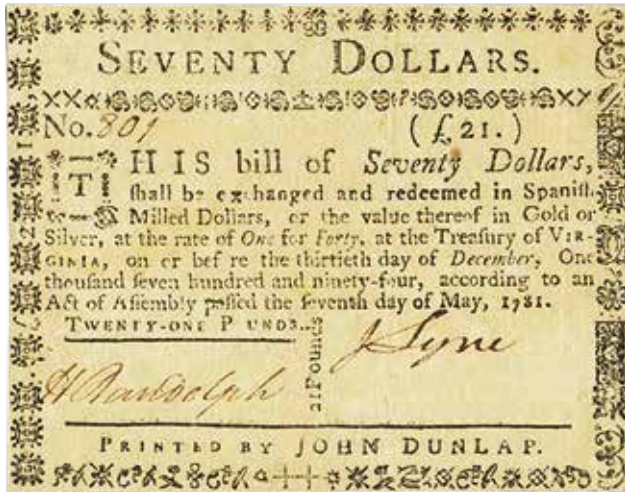 SEVENTY DOLLARS.
No. 801 (£.21.)
THIS bill of Seventy Dollars,
shall be exchanged and redeemed in Spanish
Milled Dollars, or the value thereof in Gold or
Silver, at the rate of One for Forty, at the Treasury of VIR-
GINIA, on or bef re the thirtieth day of December, One
thousand seven hundred and ninety-four, according to an
Act of Assembly passed the seventh day of May, 1781.
TWENTY-ONE P UNDS.
J Lyne
H Randolph
21 Pounds
PRINTED BY JOHN DUNLAP.